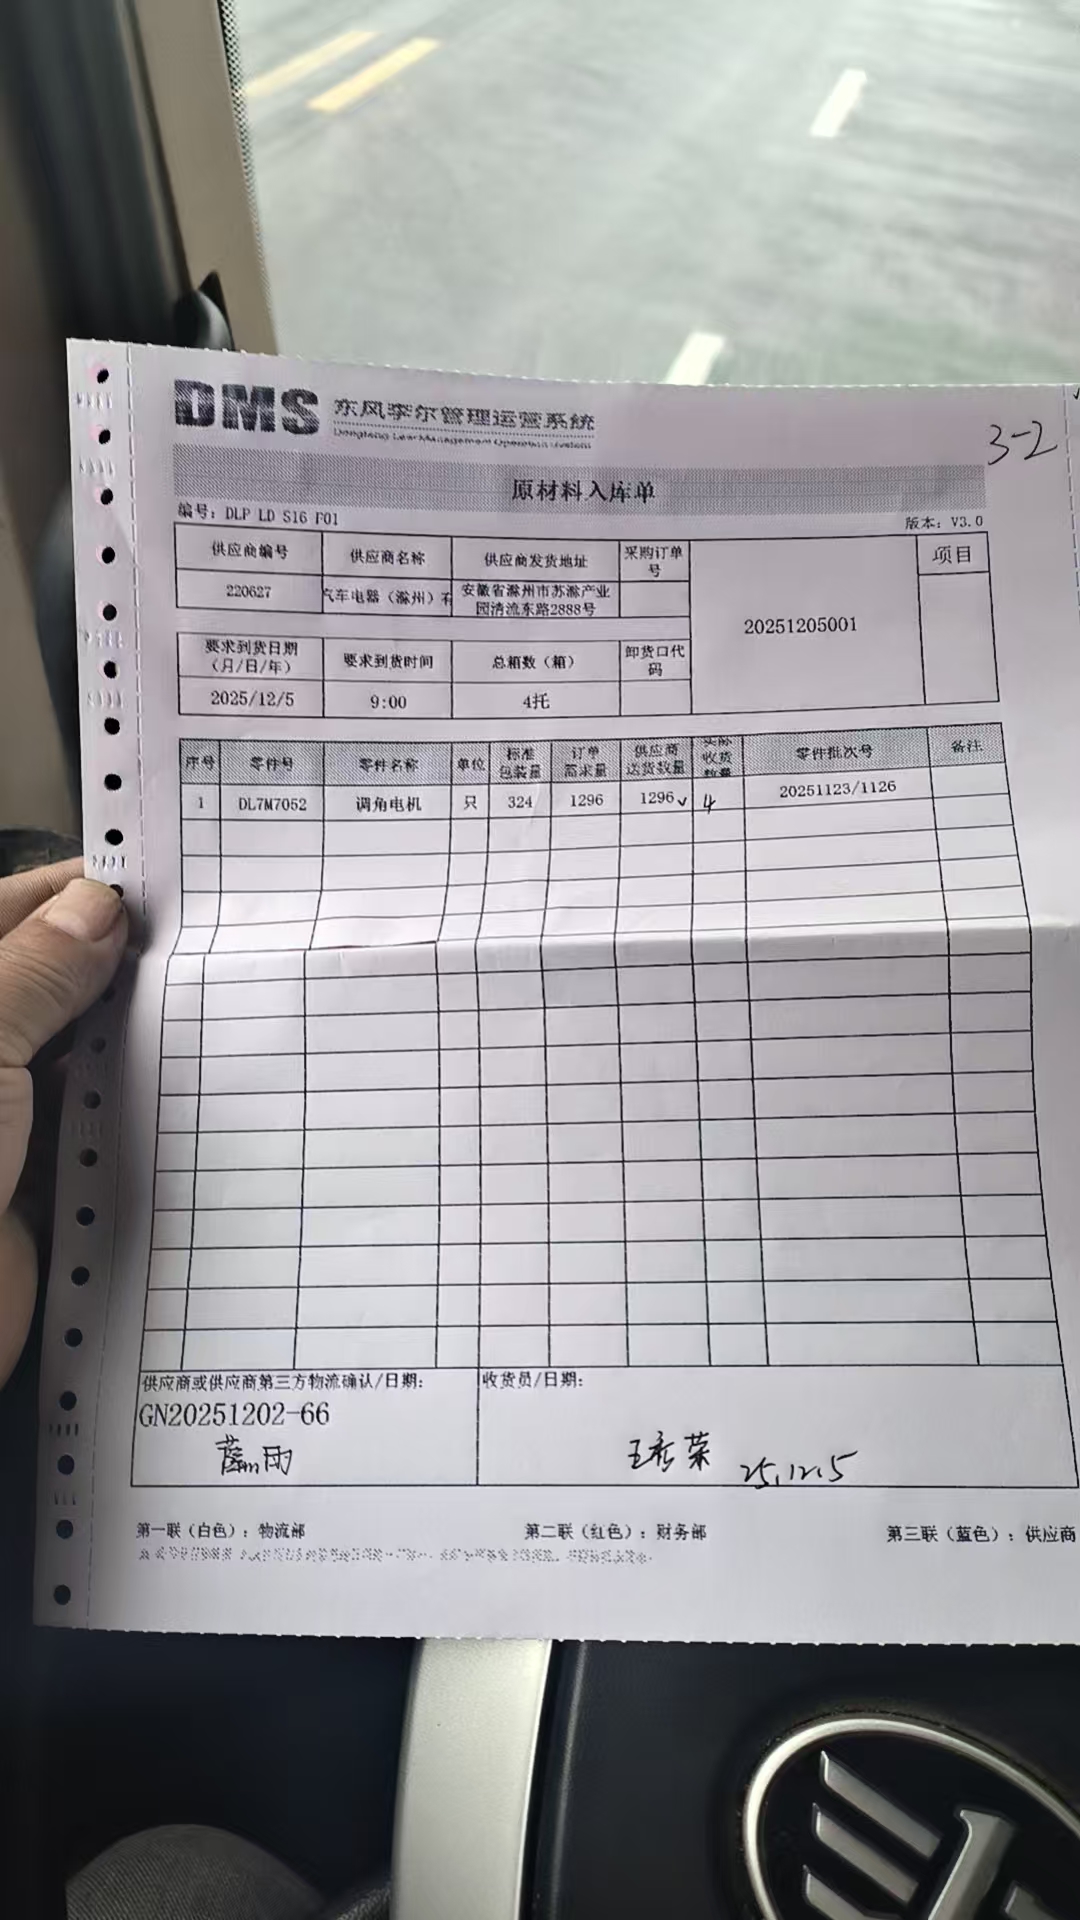 DMS 东风李尔管理运营系统
Dongfeng Lear Management Operation System
3-2
原材料入库单
编号: DLP LD S16 F01
版本: V3.0
供应商编号 供应商名称 供应商发货地址 采购订单号 20251205001 项目
220627 汽车电器（滁州）有 安徽省滁州市苏滁产业园清流东路2888号
要求到货日期（月/日/年） 要求到货时间 总箱数（箱） 卸货口代码
2025/12/5 9:00 4托
序号 零件号 零件名称 单位 标准包装量 订单需求量 供应商送货数量 实际收货数量 零件批次号 备注
1 DL7M7052 调角电机 只 324 1296 1296✓ 4 20251123/1126
供应商或供应商第三方物流确认/日期: 收货员/日期:
GN20251202-66
雨 王秀荣 25.12.5
第一联（白色）: 物流部 第二联（红色）: 财务部 第三联（蓝色）: 供应商